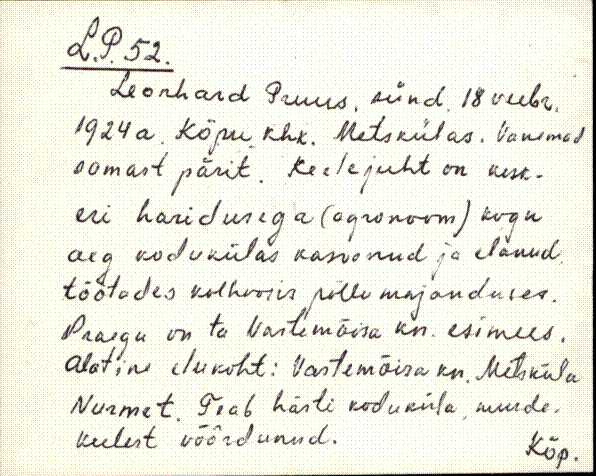 L.P. 52.
Leonhard Pruus, sünd. 18 veebr.
1924 a. Kõpu khk. Metskülas. Vanemad
samast pärit. Keelejuht on kesk-
eri haridusega (agronoom) kogu
aeg kodukülas kasvanud ja elanud,
töötades kolhoosis põllumajanduses.
Praegu on ta Vastemõisa kn. esimees.
Alatine elukoht: Vastemõisa kn. Metsküla
Nurmet. Teab hästi koduküla, murde-
keelest võõrdunud.
Kõp.